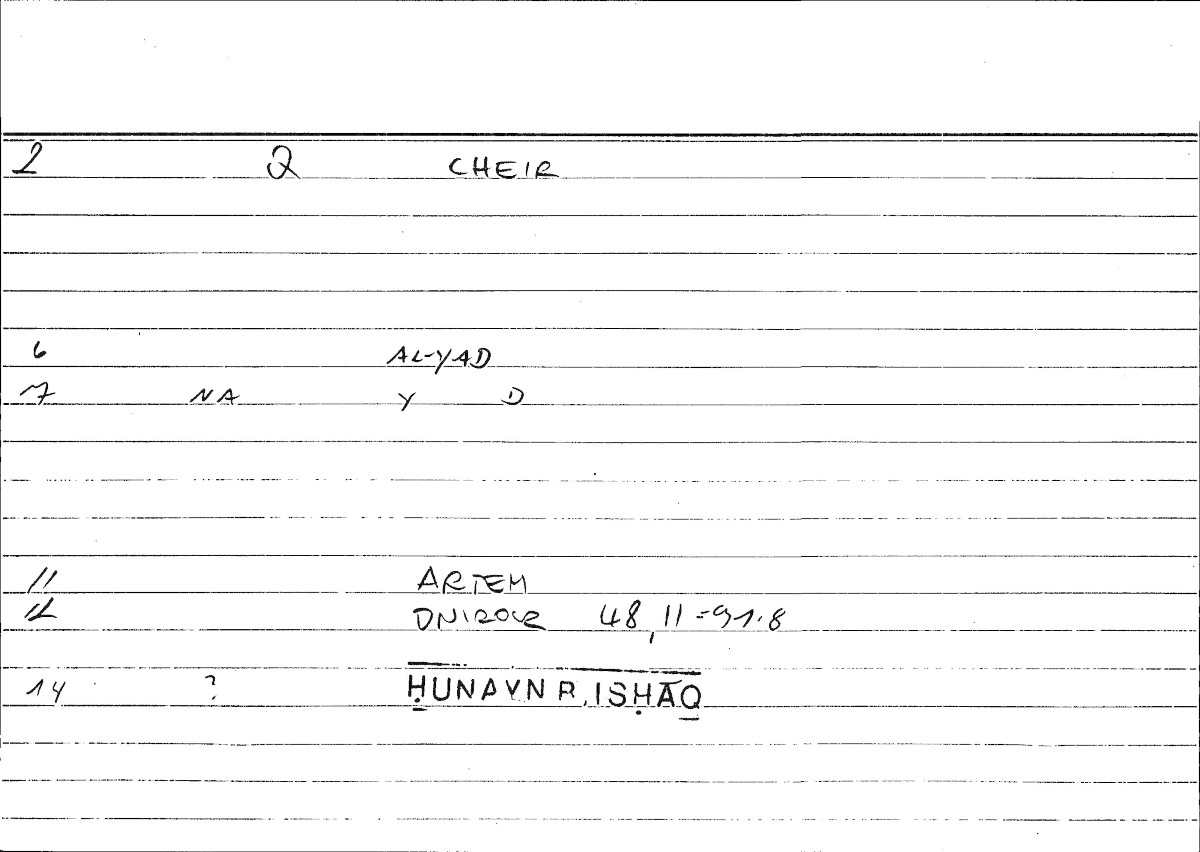 2 2 CHEIR
6 AL-YAD
7 NA Y D
11 ARTEM
12 48,11 = 91.8
14 ? ḤUNAYN B. ISḤĀQ